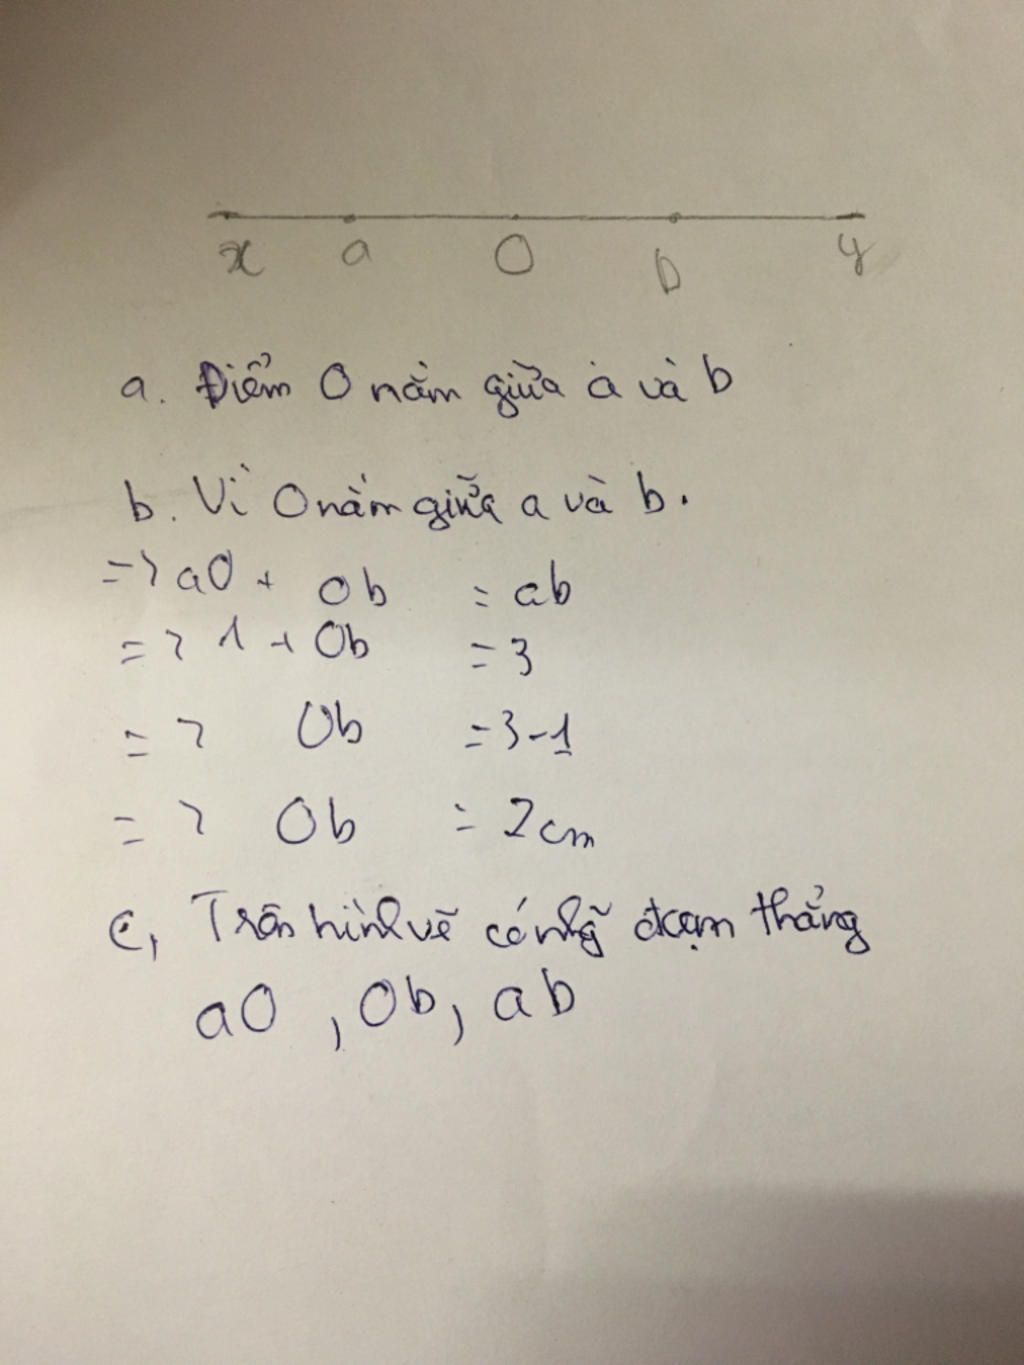 x a O b y
a. Điểm O nằm giữa a và b
b. Vì O nằm giữa a và b.
=> aO + Ob = ab
=> 1 + Ob = 3
=> Ob = 3-1
=> Ob = 2cm
c, Trên hình vẽ có nhg̃ đoạn thẳng
aO, Ob, ab